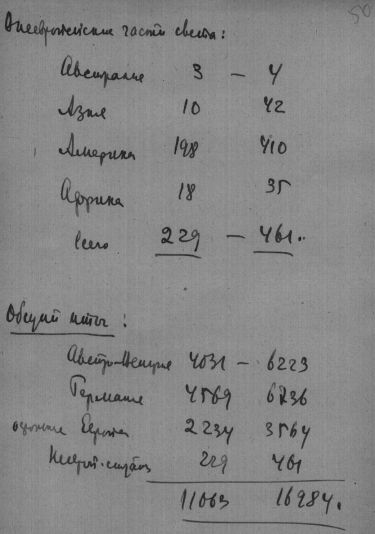 50
Внеевропейские части света:
Австралия 3 – 4
Азия 10 42
Америка 198 410
Африка 18 35
Всего 229 – 461.
Общий итог:
Австро-Венгрия 4031 – 6223
Германия 4569 6736
Европа 2234 3564
229 461
11063 16984.